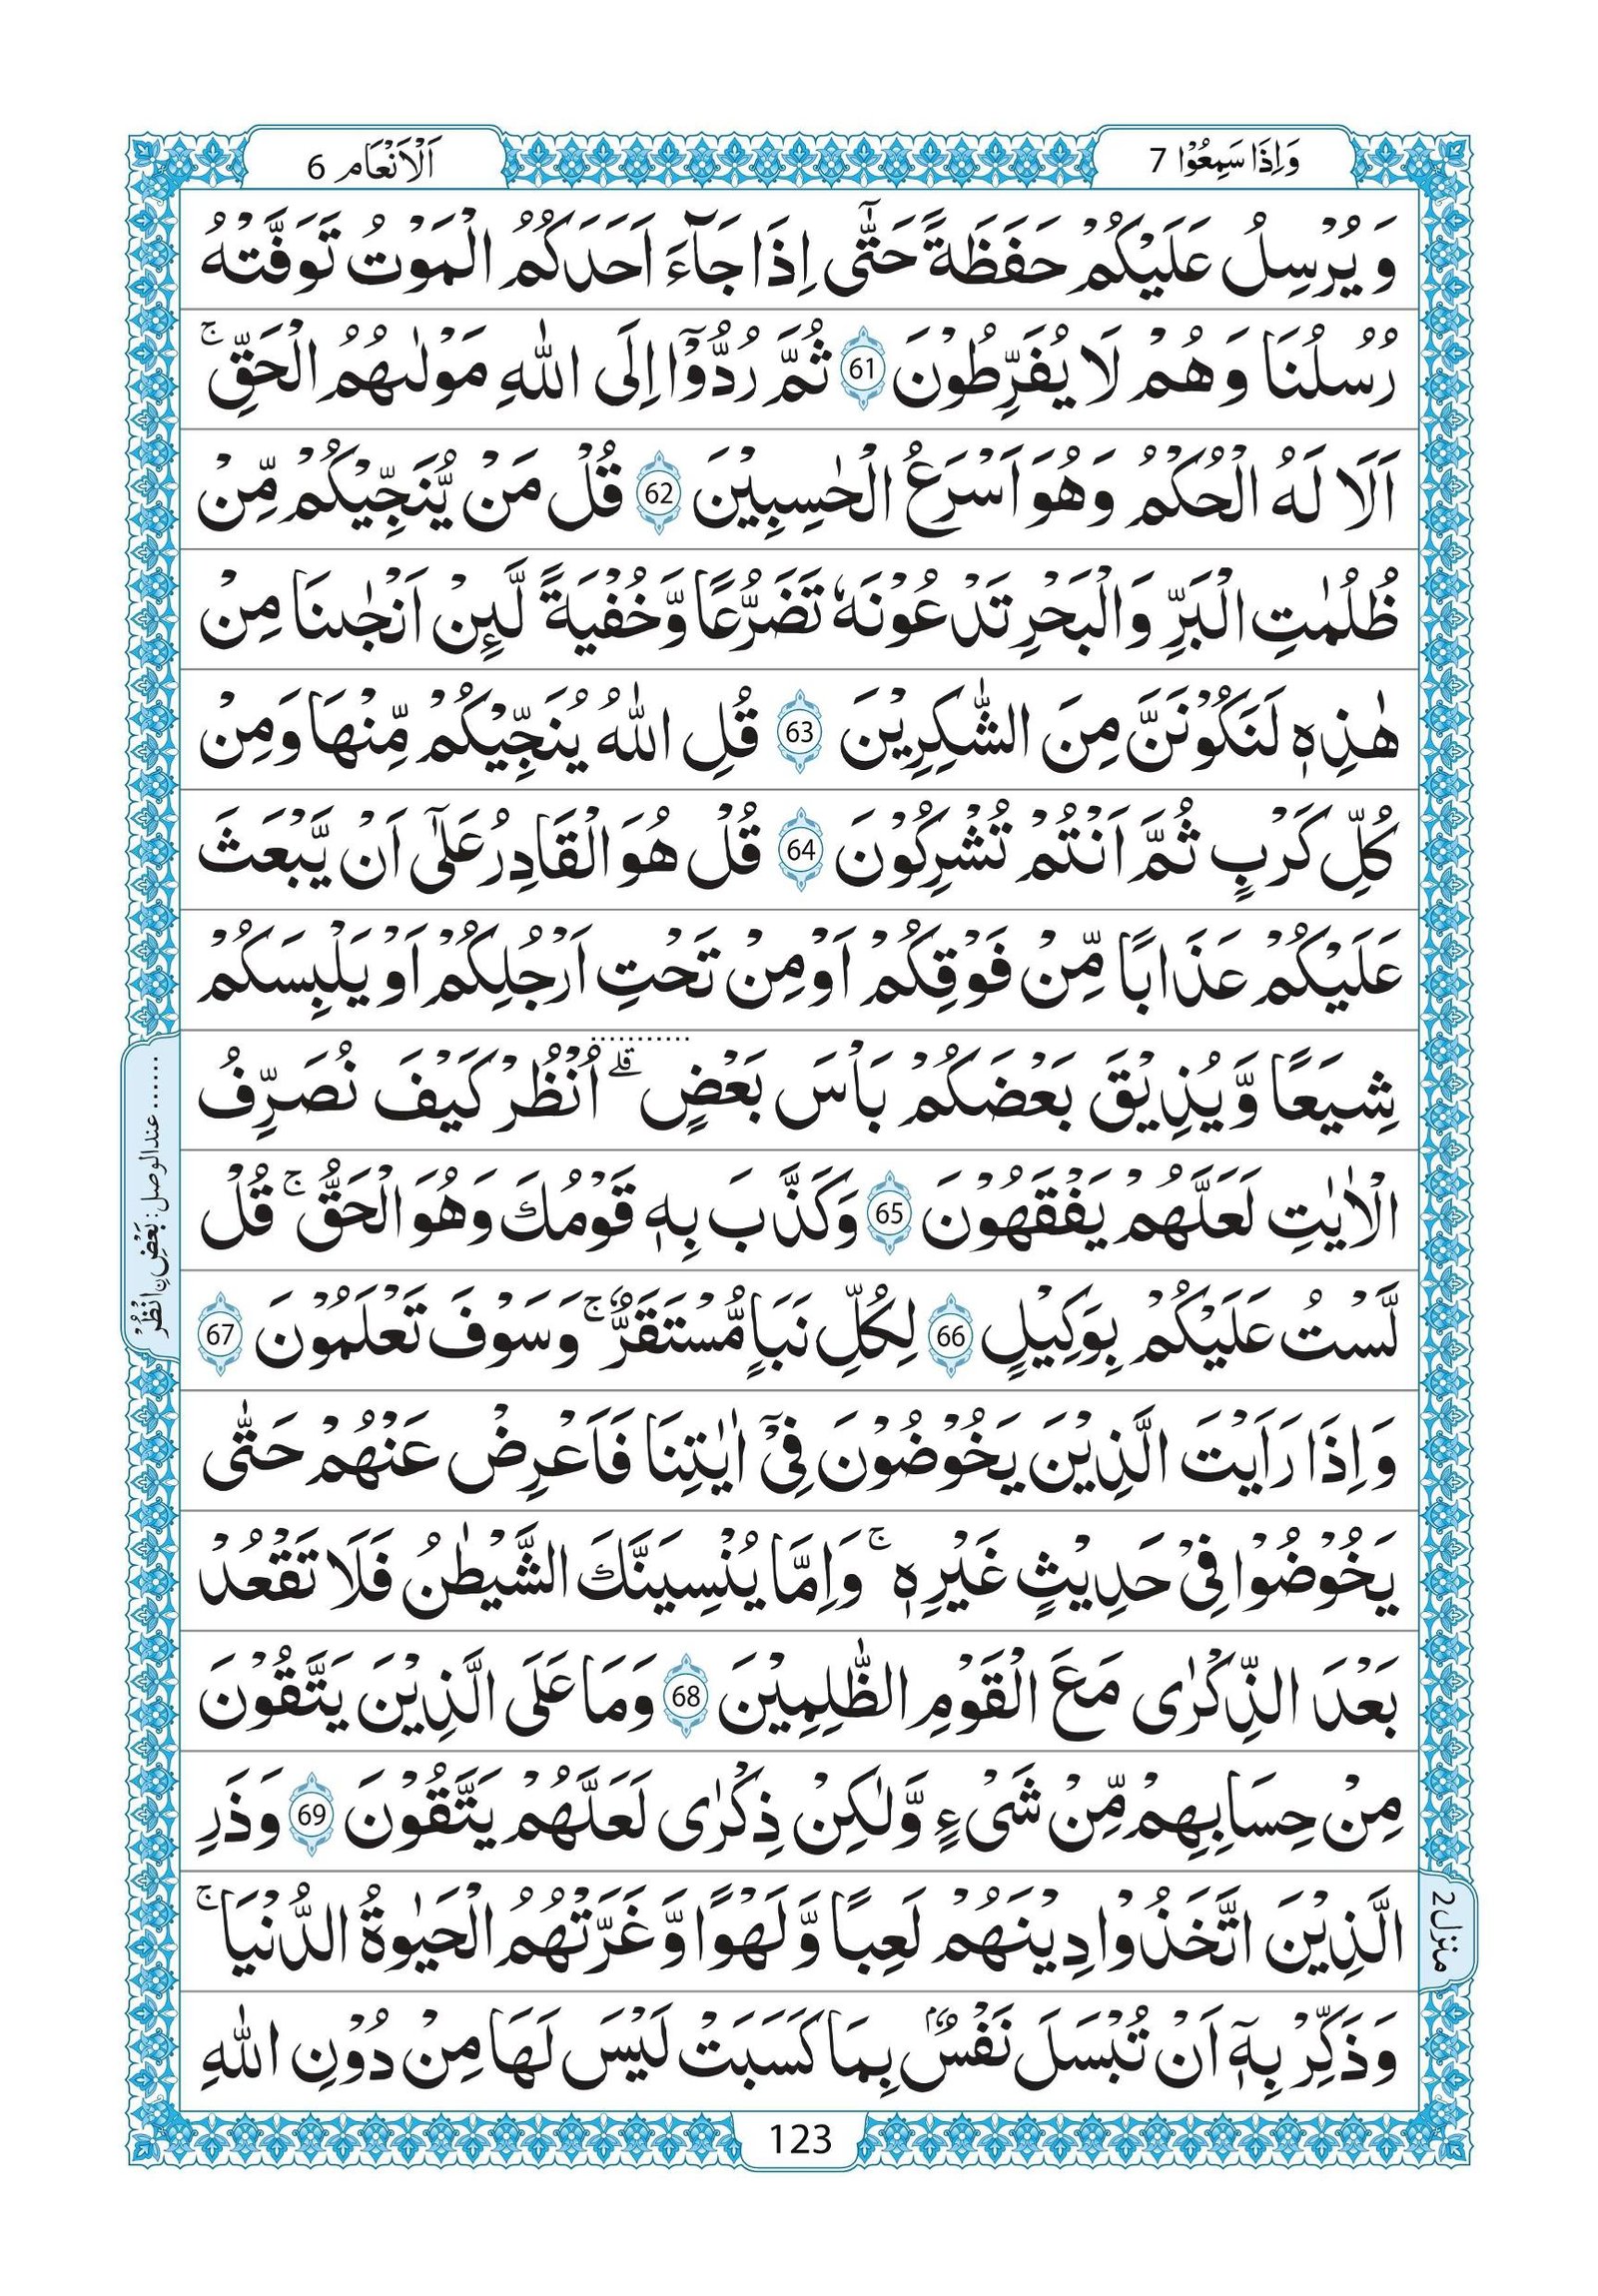 وَاِذَا سَمِعُوْا 7
اَلْاَنْعَام 6
وَ يُرْسِلُ عَلَيْكُمْ حَفَظَةً حَتّٰٓى اِذَا جَآءَ اَحَدَكُمُ الْمَوْتُ تَوَفَّتْهُ
رُسُلُنَا وَ هُمْ لَا يُفَرِّطُوْنَ 61 ثُمَّ رُدُّوْۤا اِلَى اللّٰهِ مَوْلٰىهُمُ الْحَقِّ ۚ
اَلَا لَهُ الْحُكْمُ وَهُوَ اَسْرَعُ الْحٰسِبِيْنَ 62 قُلْ مَنْ يُّنَجِّيْكُمْ مِّنْ
ظُلُمٰتِ الْبَرِّ وَالْبَحْرِ تَدْعُوْنَهٗ تَضَرُّعًا وَّخُفْيَةً لَّىِٕنْ اَنْجٰىنَا مِنْ
هٰذِهٖ لَنَكُوْنَنَّ مِنَ الشّٰكِرِيْنَ 63 قُلِ اللّٰهُ يُنَجِّيْكُمْ مِّنْهَا وَمِنْ
كُلِّ كَرْبٍ ثُمَّ اَنْتُمْ تُشْرِكُوْنَ 64 قُلْ هُوَ الْقَادِرُ عَلٰٓى اَنْ يَّبْعَثَ
عَلَيْكُمْ عَذَابًا مِّنْ فَوْقِكُمْ اَوْ مِنْ تَحْتِ اَرْجُلِكُمْ اَوْ يَلْبِسَكُمْ
شِيَعًا وَّيُذِيْقَ بَعْضَكُمْ بَاْسَ بَعْضٍ ۗ اُنْظُرْ كَيْفَ نُصَرِّفُ
الْاٰيٰتِ لَعَلَّهُمْ يَفْقَهُوْنَ 65 وَكَذَّبَ بِهٖ قَوْمُكَ وَهُوَ الْحَقُّ ۚ قُلْ
لَّسْتُ عَلَيْكُمْ بِوَكِيْلٍ 66 لِكُلِّ نَبَاٍ مُّسْتَقَرٌّ ۚ وَسَوْفَ تَعْلَمُوْنَ 67
وَاِذَا رَاَيْتَ الَّذِيْنَ يَخُوْضُوْنَ فِىْۤ اٰيٰتِنَا فَاَعْرِضْ عَنْهُمْ حَتّٰى
يَخُوْضُوْا فِىْ حَدِيْثٍ غَيْرِهٖ ۚ وَاِمَّا يُنْسِيَنَّكَ الشَّيْطٰنُ فَلَا تَقْعُدْ
بَعْدَ الذِّكْرٰى مَعَ الْقَوْمِ الظّٰلِمِيْنَ 68 وَمَا عَلَى الَّذِيْنَ يَتَّقُوْنَ
مِنْ حِسَابِهِمْ مِّنْ شَىْءٍ وَّلٰكِنْ ذِكْرٰى لَعَلَّهُمْ يَتَّقُوْنَ 69 وَذَرِ
الَّذِيْنَ اتَّخَذُوْا دِيْنَهُمْ لَعِبًا وَّلَهْوًا وَّغَرَّتْهُمُ الْحَيٰوةُ الدُّنْيَا ۚ
وَذَكِّرْ بِهٖۤ اَنْ تُبْسَلَ نَفْسٌۢ بِمَا كَسَبَتْ لَيْسَ لَهَا مِنْ دُوْنِ اللّٰهِ
...... عندالوصل: بَعْضِ نِ انْظُرْ
منزل 2
123